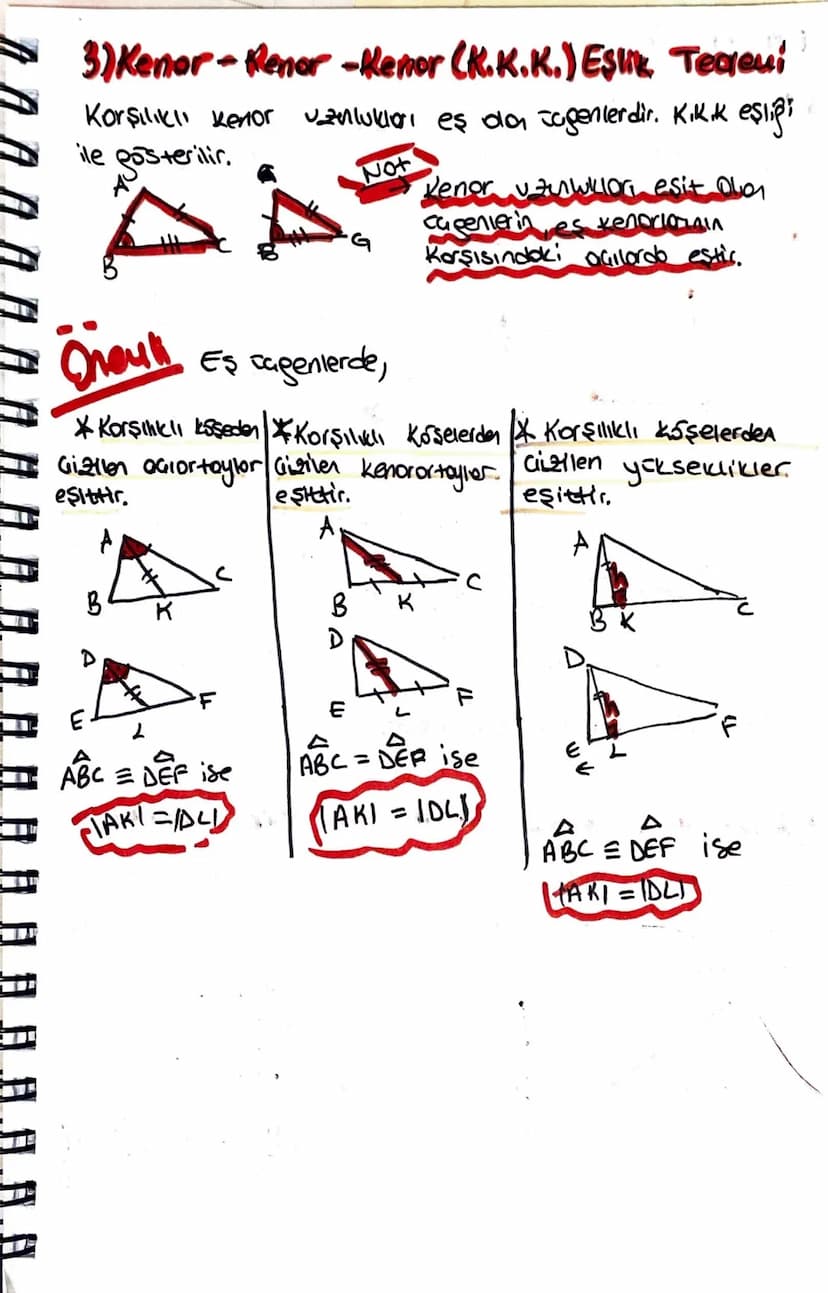 3) Kenar - Kenar - Kenar (K.K.K.) Eşlik Teoremi
Karşılıklı kenar uzunlukları eş olan üçgenlerdir. K.K.K eşliği
ile gösterilir.
Not
Kenar uzunlukları eşit olan
üçgenlerin, eş kenarlarının
karşısındaki açılarda eştir.
A
B
C
B
G
Örnek Eş üçgenlerde,
* Karşılıklı köşeden
çizilen açıortaylar
eşittir.
A
B
K
C
D
E
L
F
ABC ≡ DEF ise
|AK| = |DL|
* Karşılıklı köşelerden
çizilen kenarortaylar
eşittir.
A
B
K
C
D
E
L
F
ABC = DEF ise
|AK| = |DL|
* Karşılıklı köşelerden
çizilen yükseklikler
eşittir.
A
h
B K
C
D
h
E L
F
ABC ≡ DEF ise
|AK| = |DL|